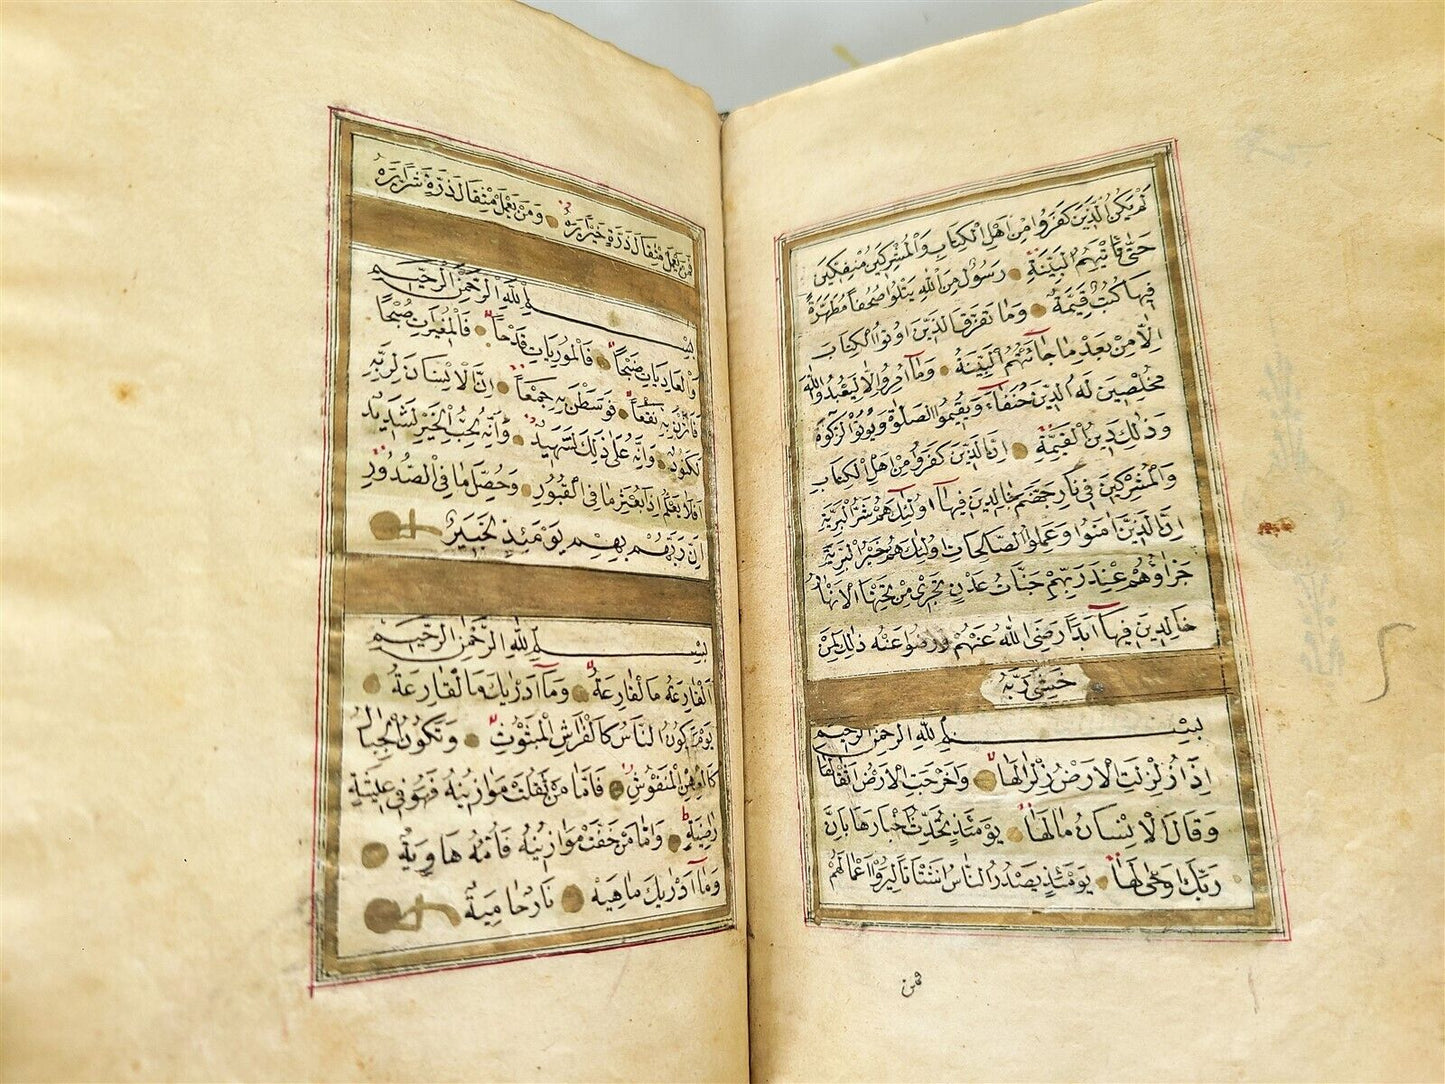 لَمْ يَكُنِ الَّذِينَ كَفَرُوا مِنْ اَهْلِ الْكِتَابِ وَالْمُشْرِكِينَ مُنْفَكِّينَ
حَتَّى تَأْتِيَهُمُ الْبَيِّنَةُ رَسُولٌ مِنَ اللهِ يَتْلُوا صُحُفًا مُطَهَّرَةً
فِيهَا كُتُبٌ قَيِّمَةٌ وَمَا تَفَرَّقَ الَّذِينَ اُوتُوا الْكِتَابَ
اِلَّا مِنْ بَعْدِ مَا جَاءَتْهُمُ الْبَيِّنَةُ وَمَا اُمِرُوا اِلَّا لِيَعْبُدُوا اللهَ
مُخْلِصِينَ لَهُ الدِّينَ حُنَفَاءَ وَيُقِيمُوا الصَّلٰوةَ وَيُؤْتُوا الزَّكٰوةَ
وَذٰلِكَ دِينُ الْقَيِّمَةِ اِنَّ الَّذِينَ كَفَرُوا مِنْ اَهْلِ الْكِتَابِ
وَالْمُشْرِكِينَ فِي نَارِ جَهَنَّمَ خَالِدِينَ فِيهَا اُولٰئِكَ هُمْ شَرُّ الْبَرِيَّةِ
اِنَّ الَّذِينَ اٰمَنُوا وَعَمِلُوا الصَّالِحَاتِ اُولٰئِكَ هُمْ خَيْرُ الْبَرِيَّةِ
جَزَاؤُهُمْ عِنْدَ رَبِّهِمْ جَنَّاتُ عَدْنٍ تَجْرِي مِنْ تَحْتِهَا الْاَنْهَارُ
خَالِدِينَ فِيهَا اَبَدًا رَضِيَ اللهُ عَنْهُمْ وَرَضُوا عَنْهُ ذٰلِكَ لِمَنْ
خَشِيَ رَبَّهُ
بِسْمِ اللهِ الرَّحْمٰنِ الرَّحِيمِ
اِذَا زُلْزِلَتِ الْاَرْضُ زِلْزَالَهَا وَاَخْرَجَتِ الْاَرْضُ اَثْقَالَهَا
وَقَالَ الْاِنْسَانُ مَا لَهَا يَوْمَئِذٍ تُحَدِّثُ اَخْبَارَهَا بِاَنَّ
رَبَّكَ اَوْحٰى لَهَا يَوْمَئِذٍ يَصْدُرُ النَّاسُ اَشْتَاتًا لِيُرَوْا اَعْمَالَهُمْ
فمن
فَمَنْ يَعْمَلْ مِثْقَالَ ذَرَّةٍ خَيْرًا يَرَهُ وَمَنْ يَعْمَلْ مِثْقَالَ ذَرَّةٍ شَرًّا يَرَهُ
بِسْمِ اللهِ الرَّحْمٰنِ الرَّحِيمِ
وَالْعَادِيَاتِ ضَبْحًا فَالْمُورِيَاتِ قَدْحًا فَالْمُغِيرَاتِ صُبْحًا
فَاَثَرْنَ بِهِ نَقْعًا فَوَسَطْنَ بِهِ جَمْعًا اِنَّ الْاِنْسَانَ لِرَبِّهِ
لَكَنُودٌ وَاِنَّهُ عَلٰى ذٰلِكَ لَشَهِيدٌ وَاِنَّهُ لِحُبِّ الْخَيْرِ لَشَدِيدٌ
اَفَلَا يَعْلَمُ اِذَا بُعْثِرَ مَا فِي الْقُبُورِ وَحُصِّلَ مَا فِي الصُّدُورِ
اِنَّ رَبَّهُمْ بِهِمْ يَوْمَئِذٍ لَخَبِيرٌ
بِسْمِ اللهِ الرَّحْمٰنِ الرَّحِيمِ
اَلْقَارِعَةُ مَا الْقَارِعَةُ وَمَا اَدْرٰيكَ مَا الْقَارِعَةُ
يَوْمَ يَكُونُ النَّاسُ كَالْفَرَاشِ الْمَبْثُوثِ وَتَكُونُ الْجِبَالُ
كَالْعِهْنِ الْمَنْفُوشِ فَاَمَّا مَنْ ثَقُلَتْ مَوَازِينُهُ فَهُوَ فِي عِيشَةٍ
رَاضِيَةٍ وَاَمَّا مَنْ خَفَّتْ مَوَازِينُهُ فَاُمُّهُ هَاوِيَةٌ
وَمَا اَدْرٰيكَ مَا هِيَهْ نَارٌ حَامِيَةٌ